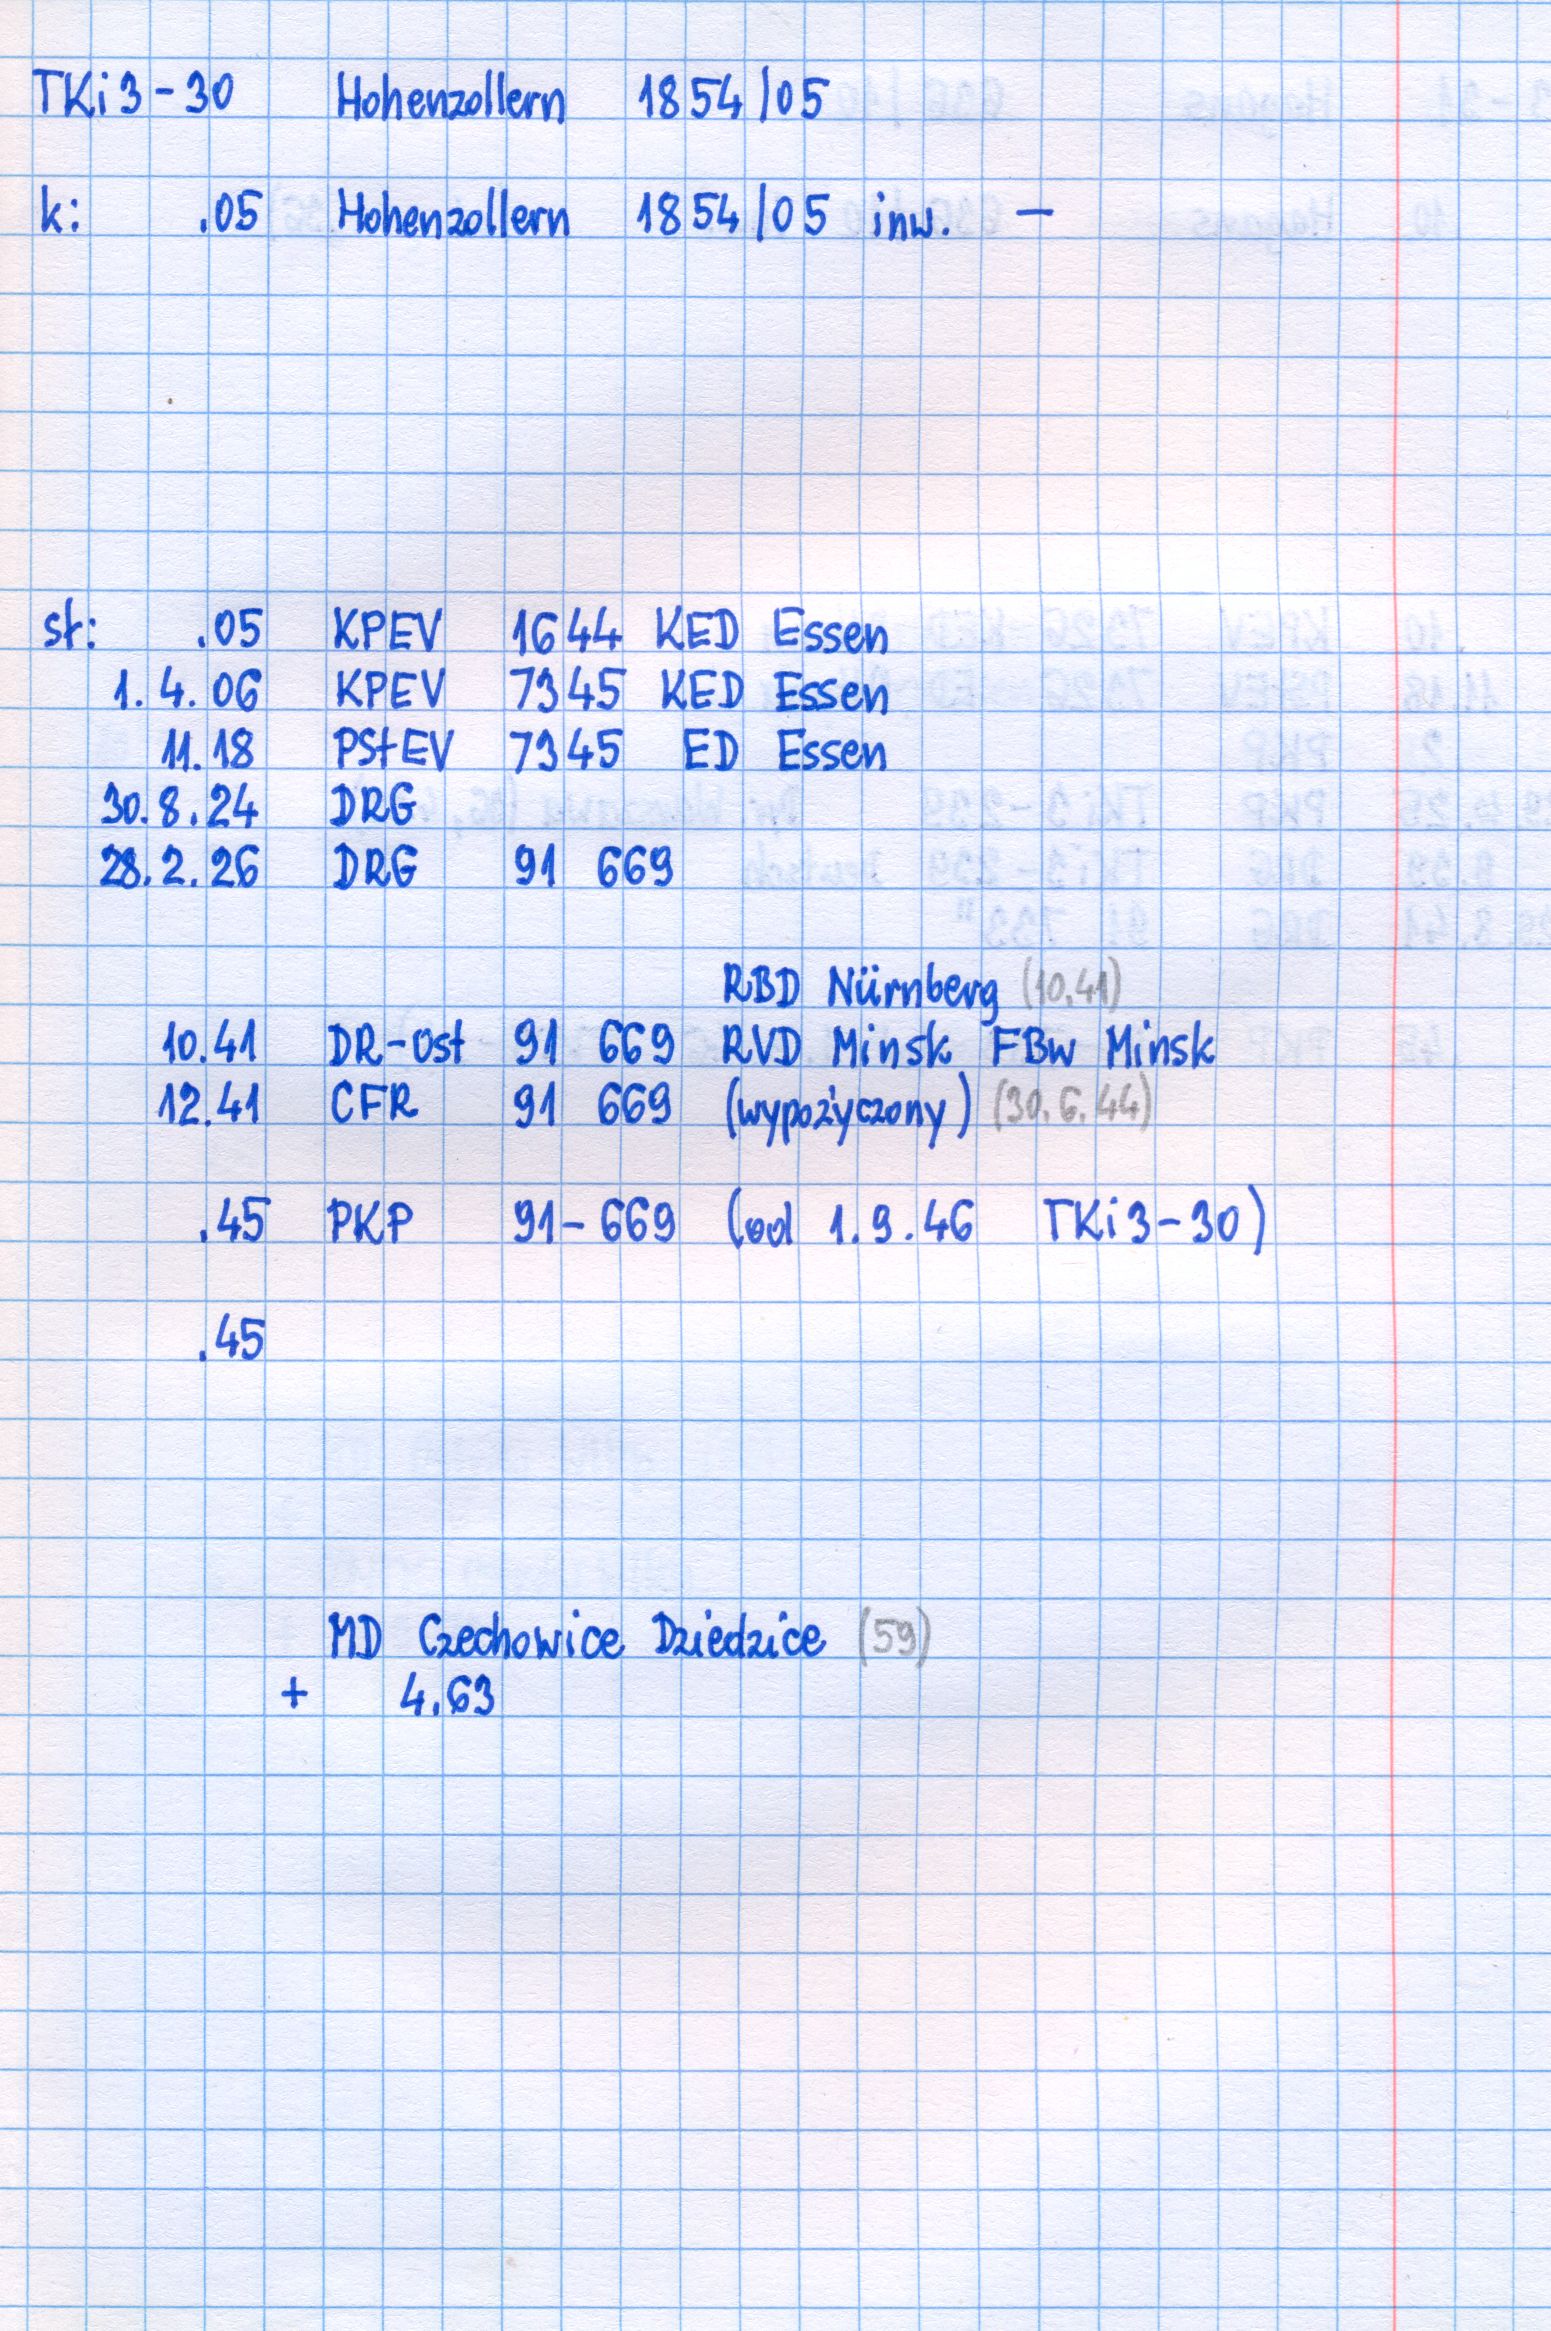 TKi3-30 Hohenzollern 1854/05
k: .05 Hohenzollern 1854/05 inw. –
st: .05 KPEV 1644 KED Essen
1.4.06 KPEV 7345 KED Essen
11.18 PStEV 7345 ED Essen
30.8.24 DRG
28.2.26 DRG 91 669
RBD Nürnberg (10.41)
10.41 DR-Ost 91 669 RVD Minsk FBw Minsk
12.41 CFR 91 669 (wypożyczony) (30.6.44)
.45 PKP 91-669 (od 1.9.46 TKi3-30)
.45
MD Czechowice Dziedzice (59)
+ 4.63